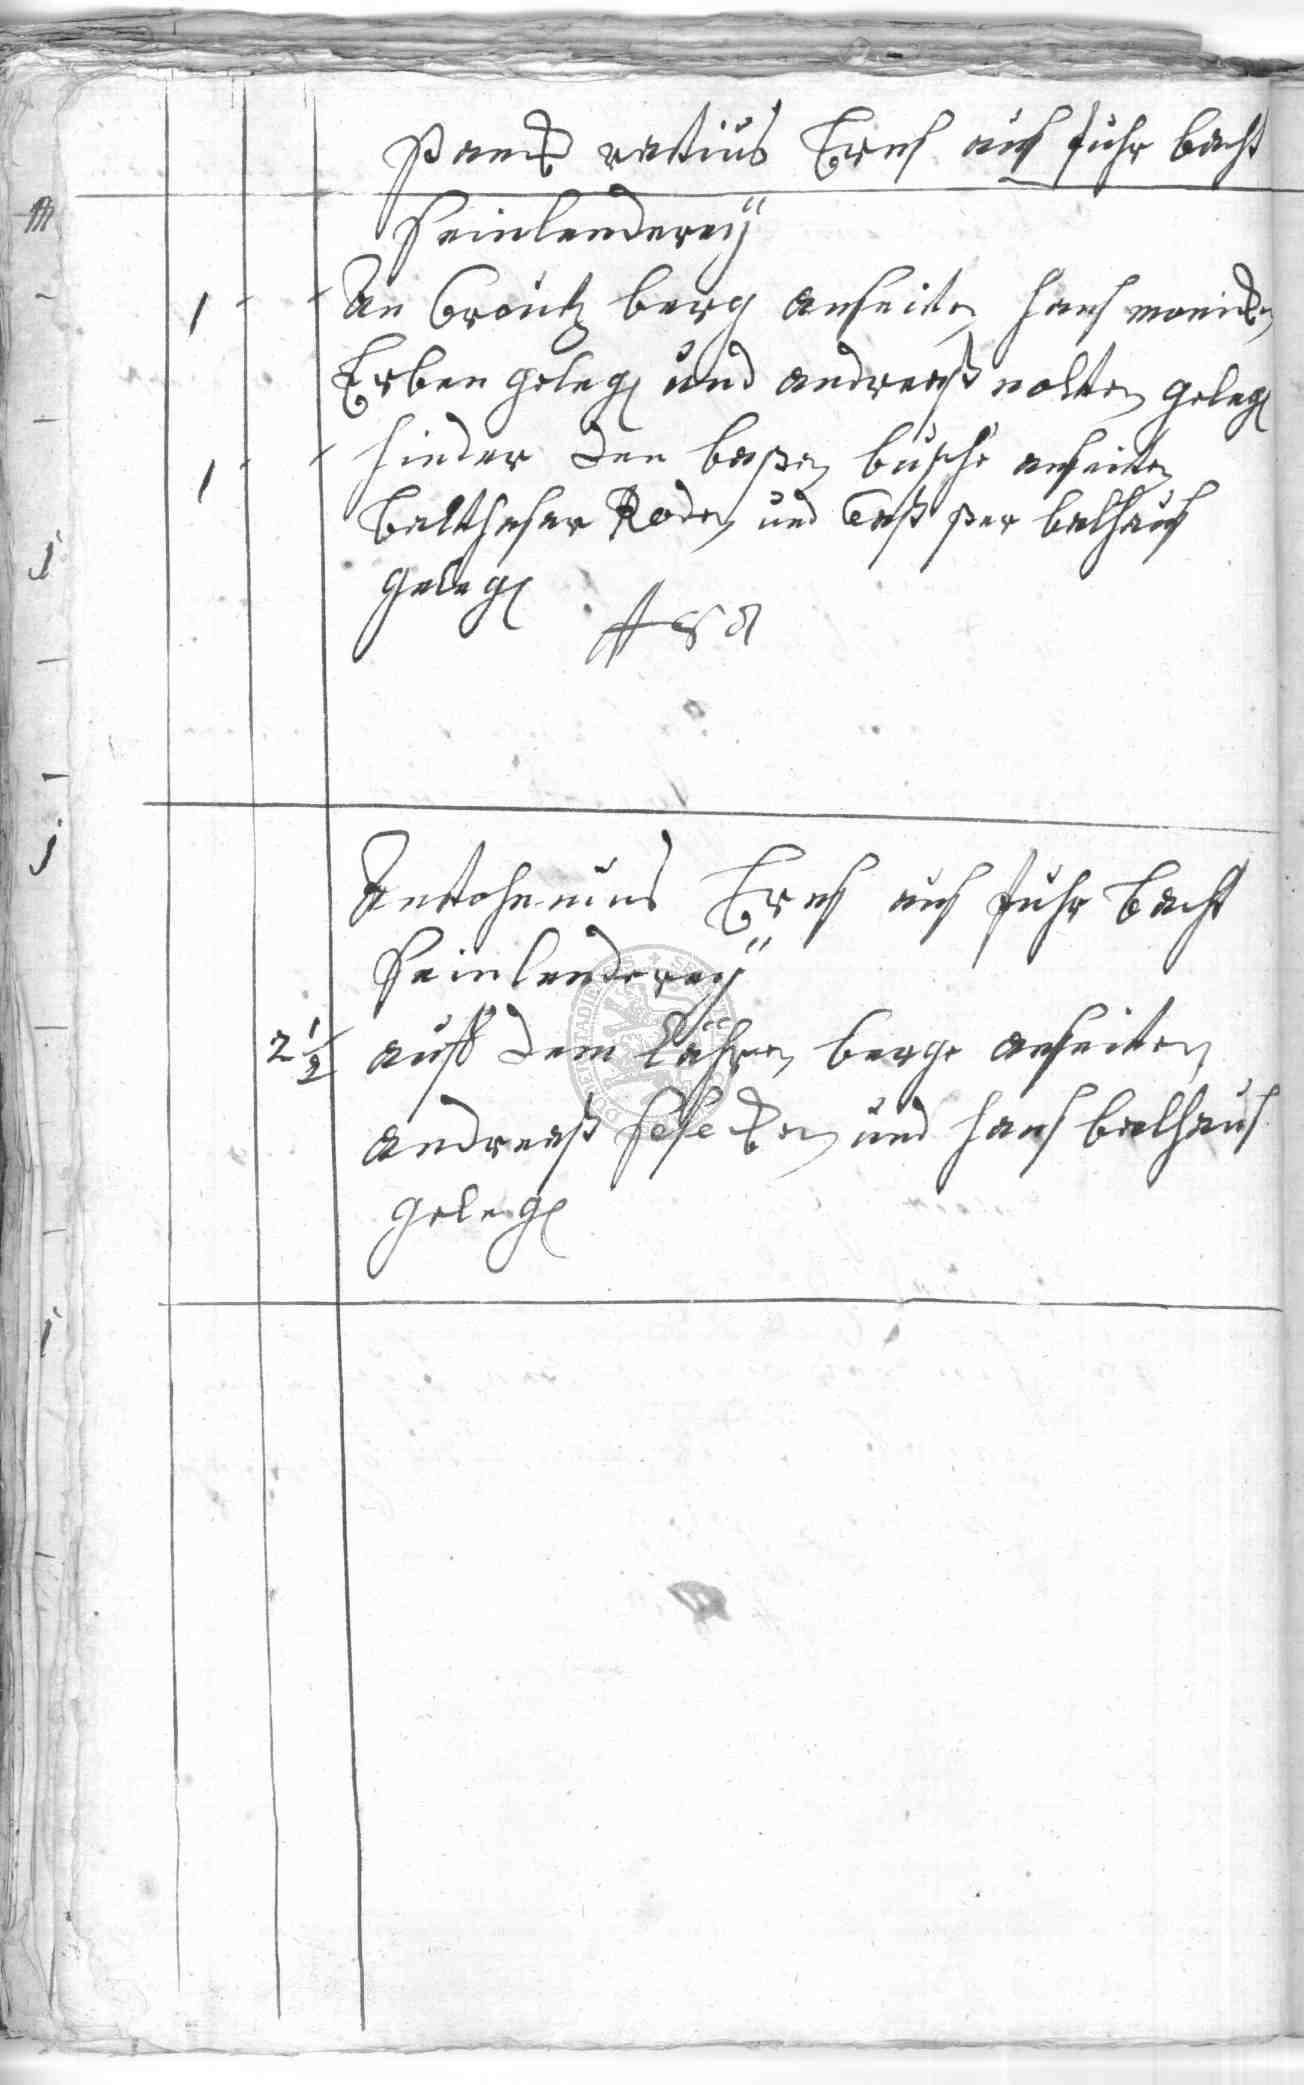 Panck ratius Ernst aus fuhr bach
seinlenderey
1 An Creutz berg anseiten Hans monicken
Erben geleg und andreas nolten geleg
1 hinder den busche anseiten
Balthasar Roden und Casper balhaus
geleg
Anthonius Ernst aus fuhr Bach
seinlenderey
2 1/2 auff dem berge anseiten
andreas und Hans balhaus
geleg